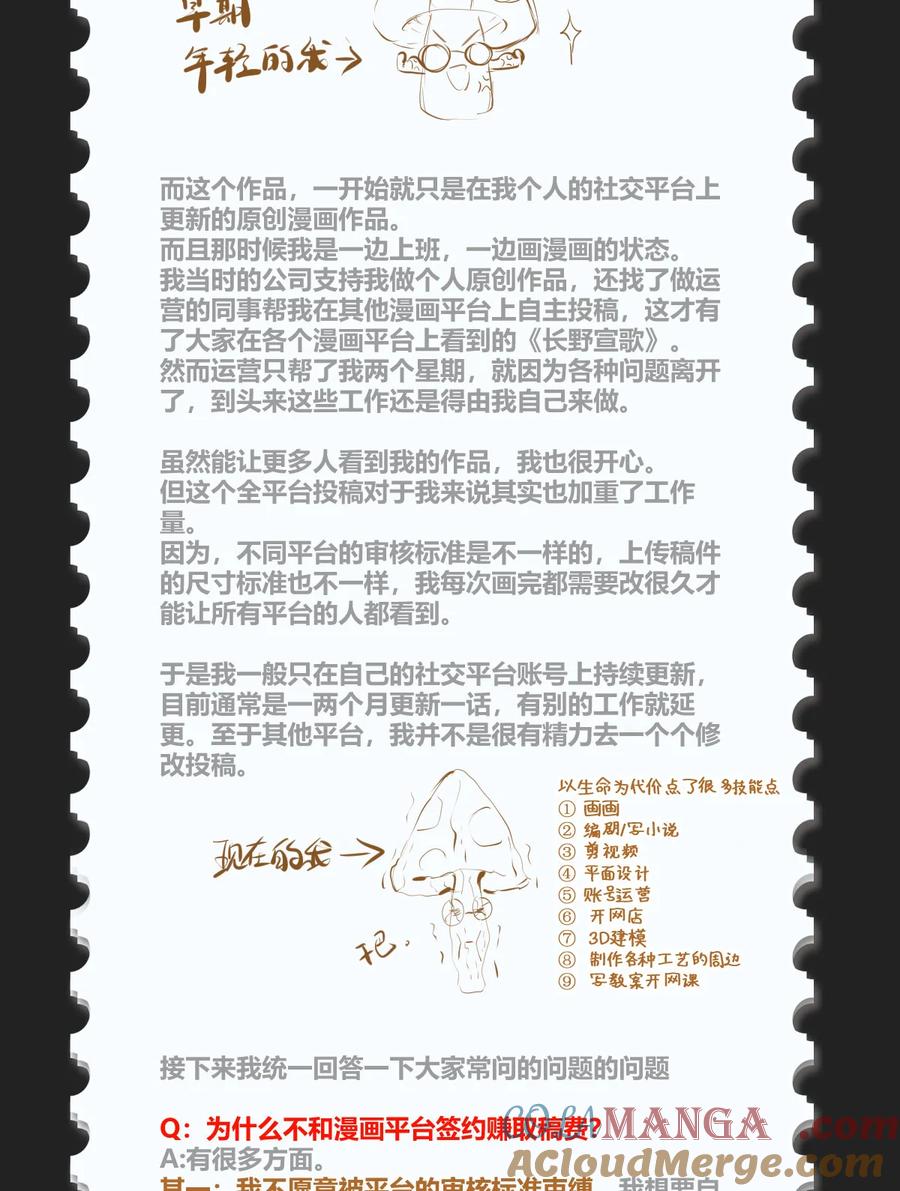 早期
年轻的我→
而这个作品，一开始就只是在我个人的社交平台上
更新的原创漫画作品。
而且那时候我是一边上班，一边画漫画的状态。
我当时的公司支持我做个人原创作品，还找了做运
营的同事帮我在其他漫画平台上自主投稿，这才有
了大家在各个漫画平台上看到的《长野宣歌》。
然而运营只帮了我两个星期，就因为各种问题离开
了，到头来这些工作还是得由我自己来做。
虽然能让更多人看到我的作品，我也很开心。
但这个全平台投稿对于我来说其实也加重了工作
量。
因为，不同平台的审核标准是不一样的，上传稿件
的尺寸标准也不一样，我每次画完都需要改很久才
能让所有平台的人都看到。
于是我一般只在自己的社交平台账号上持续更新，
目前通常是一两个月更新一话，有别的工作就延
更。至于其他平台，我并不是很有精力去一个个修
改投稿。
现在的我→
干巴.
以生命为代价点了很多技能点
① 画画
② 编剧/写小说
③ 剪视频
④ 平面设计
⑤ 账号运营
⑥ 开网店
⑦ 3D建模
⑧ 制作各种工艺的周边
⑨ 写教案开网课
接下来我统一回答一下大家常问的问题的问题
Q：为什么不和漫画平台签约赚取稿费？
COLAMANGA.com
A:有很多方面。
AcloudMerge.com
其一：我不愿意被平台的审核标准束缚，我想要自